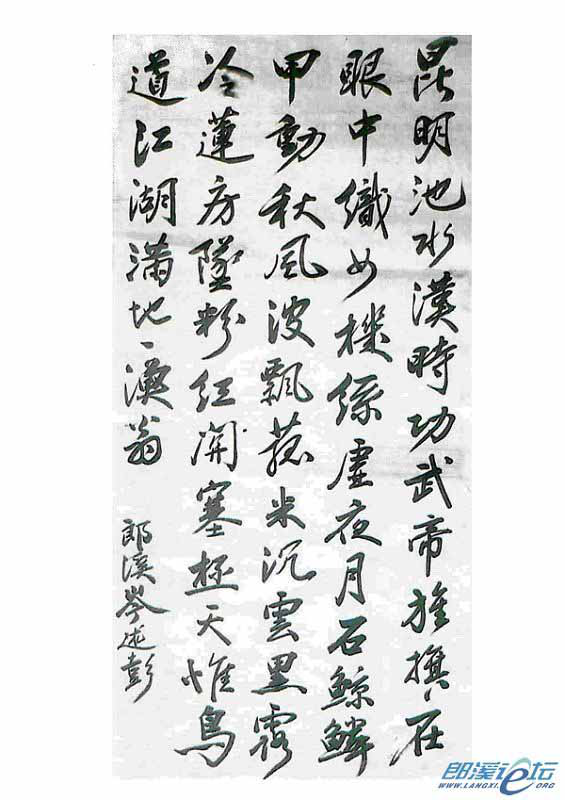 昆明池水漢時功武帝旌旗在
眼中織女機絲虛夜月石鯨鱗
甲動秋風波飄菰米沉雲黑露
冷蓮房墜粉紅關塞極天惟鳥
道江湖滿地一漁翁
郎溪岑述彭
郎溪论坛
WWW.LANGXI.ORG